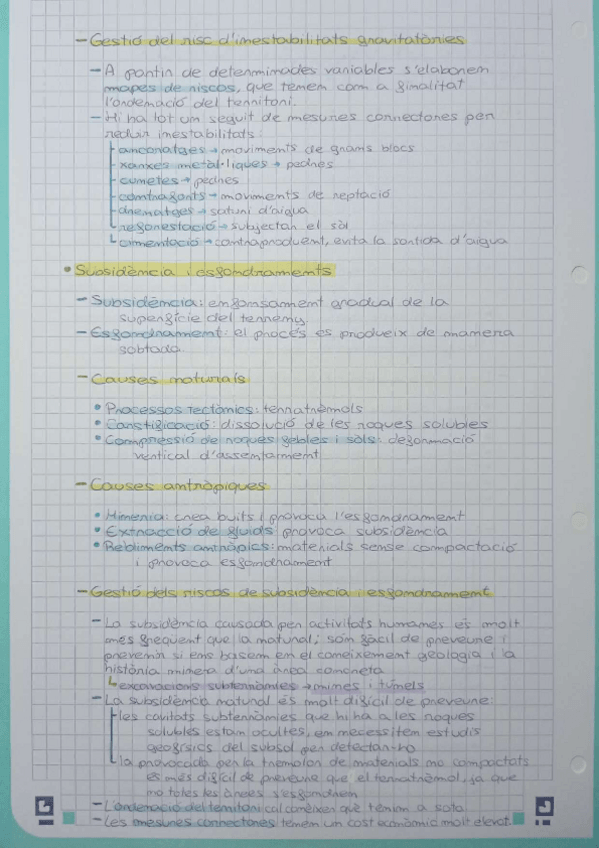 - Gestió del risc d'inestabilitats gravitatòries
- A partir de determinades variables s'elaboren
mapes de riscos, que tenen com a finalitat
l'ordenació del territori.
- Hi ha tot un seguit de mesures correctores per
reduir inestabilitats:
ancoratges → moviments de grans blocs
xarxes metàl·liques → pedres
cunetes → pedres
contraforts → moviments de reptació
drenatges → saturi d'aigua
reforestació → subjectar el sòl
cimentació → contraproduent, evita la sortida d'aigua
• Subsidència i esfondraments
- Subsidència: enfonsament gradual de la
superfície del terreny
- Esfondrament: el procés es produeix de manera
sobtada.
- Causes naturals
• Processos tectònics: terratrèmols
• Carstificació: dissolució de les roques solubles
• Compressió de roques febles i sòls: deformació
vertical d'assentament
- Causes antròpiques
• Mineria: crea buits i provoca l'esfondrament
• Extracció de fluids provoca subsidència
• Rebliments antròpics: materials sense compactació
i provoca esfondrament
- Gestió dels riscos de subsidència i esfondrament
- La subsidència causada per activitats humanes és molt
més freqüent que la natural; són fàcil de preveure i
prevenir si ens basem en el coneixement geologia i la
història minera d'una àrea concreta
excavacions subterrànies → mines i túnels
- La subsidència natural és molt difícil de preveure:
les cavitats subterrànies que hi ha a les roques
solubles estan ocultes, en necessiten estudis
geofísics del subsol per detectar-ho
la provocada per la tremolor de materials no compactats
és més difícil de preveure que el terratrèmol, ja que
no totes les àrees s'esfondren
- L'ordenació del territori cal conèixer què tenim a sota
- Les mesures correctores tenen un cost econòmic molt elevat.